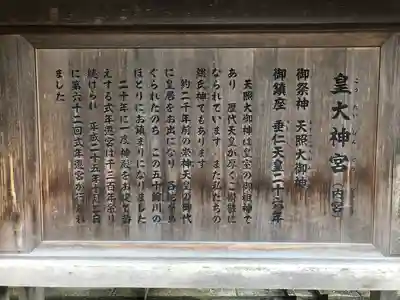 皇大神宮（内宮）
こうたいじんぐう
御祭神 天照大御神
御鎮座 垂仁天皇二十六年
天照大御神は皇室の御祖神で
あり 歴代天皇が厚くご崇敬に
なられています また私たちの
総氏神でもあります
約二千年前の崇神天皇の御代
に皇居をお出になり
ぐられたのち この五十鈴川の
ほとりにお鎮まりになりました
二十年に一度神殿をお建て替
えする式年遷宮は千三百年余り
続けられ 平成二十五年十月二日
に第六十二回式年遷宮が行われ
ました